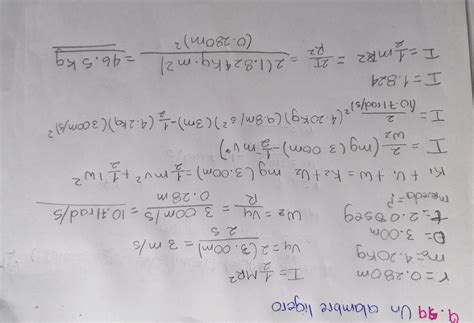 9.49 Un alambre ligero
r = 0.280m I = 1/2 MR²
m = 4.20kg
D = 3.00m v4 = 2(3.00m)/2s = 3 m/s
t = 2.00seg w2 = v4/R = 3.00m/s/0.28m = 10.71rad/s
m rueda = ?
K1 + U1 + w = K2 + U2 mg(3.00m) = 1/2 mv² + 1/2 I w²
I = 2/w2 (mg(3.00m) - 1/2 mv²)
I = 2/(10.71rad/s)² (4.20kg)(9.8m/s²)(3m) - 1/2 (4.2kg)(3.00m/s)²
I = 1.824
I = 1/2 mR² = 2I/R² = 2(1.824kg·m²)/(0.280m)² = 46.5kg